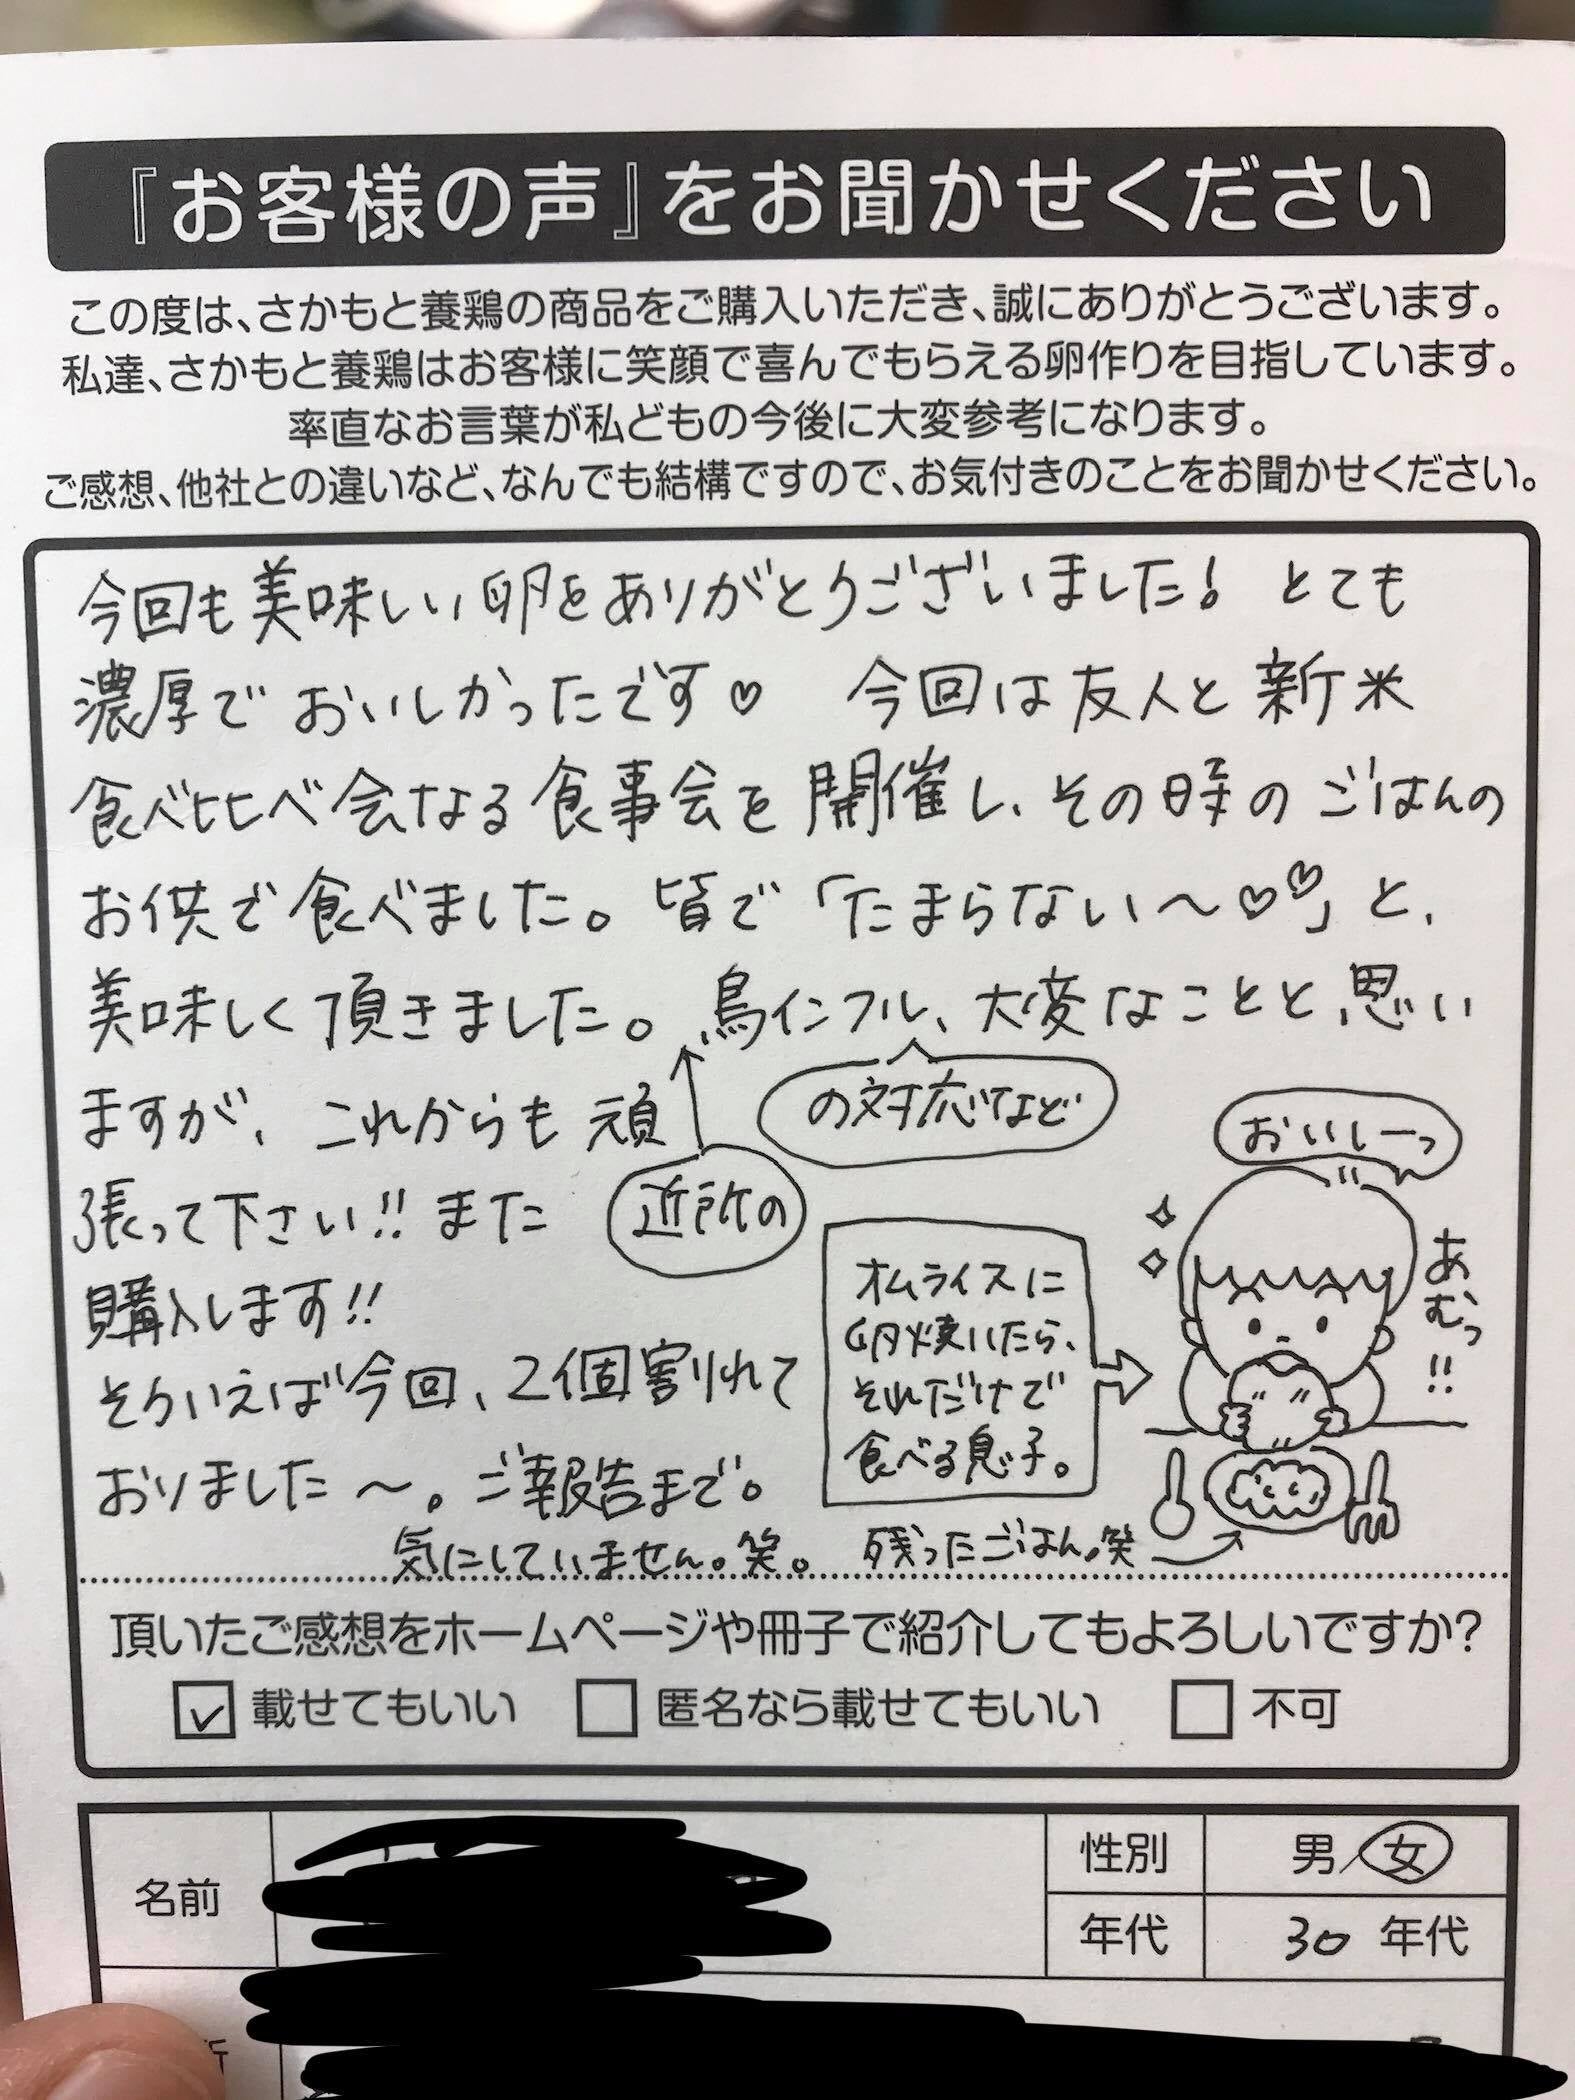 『お客様の声』をお聞かせください
この度は、さかもと養鶏の商品をご購入いただき、誠にありがとうございます。
私達、さかもと養鶏はお客様に笑顔で喜んでもらえる卵作りを目指しています。
率直なお言葉が私どもの今後に大変参考になります。
ご感想、他社との違いなど、なんでも結構ですので、お気付きのことをお聞かせください。
今回も美味しい卵をありがとうございました! とても
濃厚でおいしかったです♡ 今回は友人と新米
食べ比べ会なる食事会を開催し、その時のごはんの
お供で食べました。皆で「たまらない〜♡♡」と、
美味しく頂きました。鳥インフル、大変なことと思い
の対応など
ますが、これからも頑
張って下さい!! また
近所の
購入します!!
そういえば今回、2個割れて
おりました〜。ご報告まで。
気にしていません。笑。
オムライスに
卵焼いたら、
それだけで
食べる息子。
おいしーっ
あむっ!!
残ったごはん。笑
頂いたご感想をホームページや冊子で紹介してもよろしいですか?
☑ 載せてもいい □ 匿名なら載せてもいい □ 不可
名前
性別 男/女
年代 30年代
所